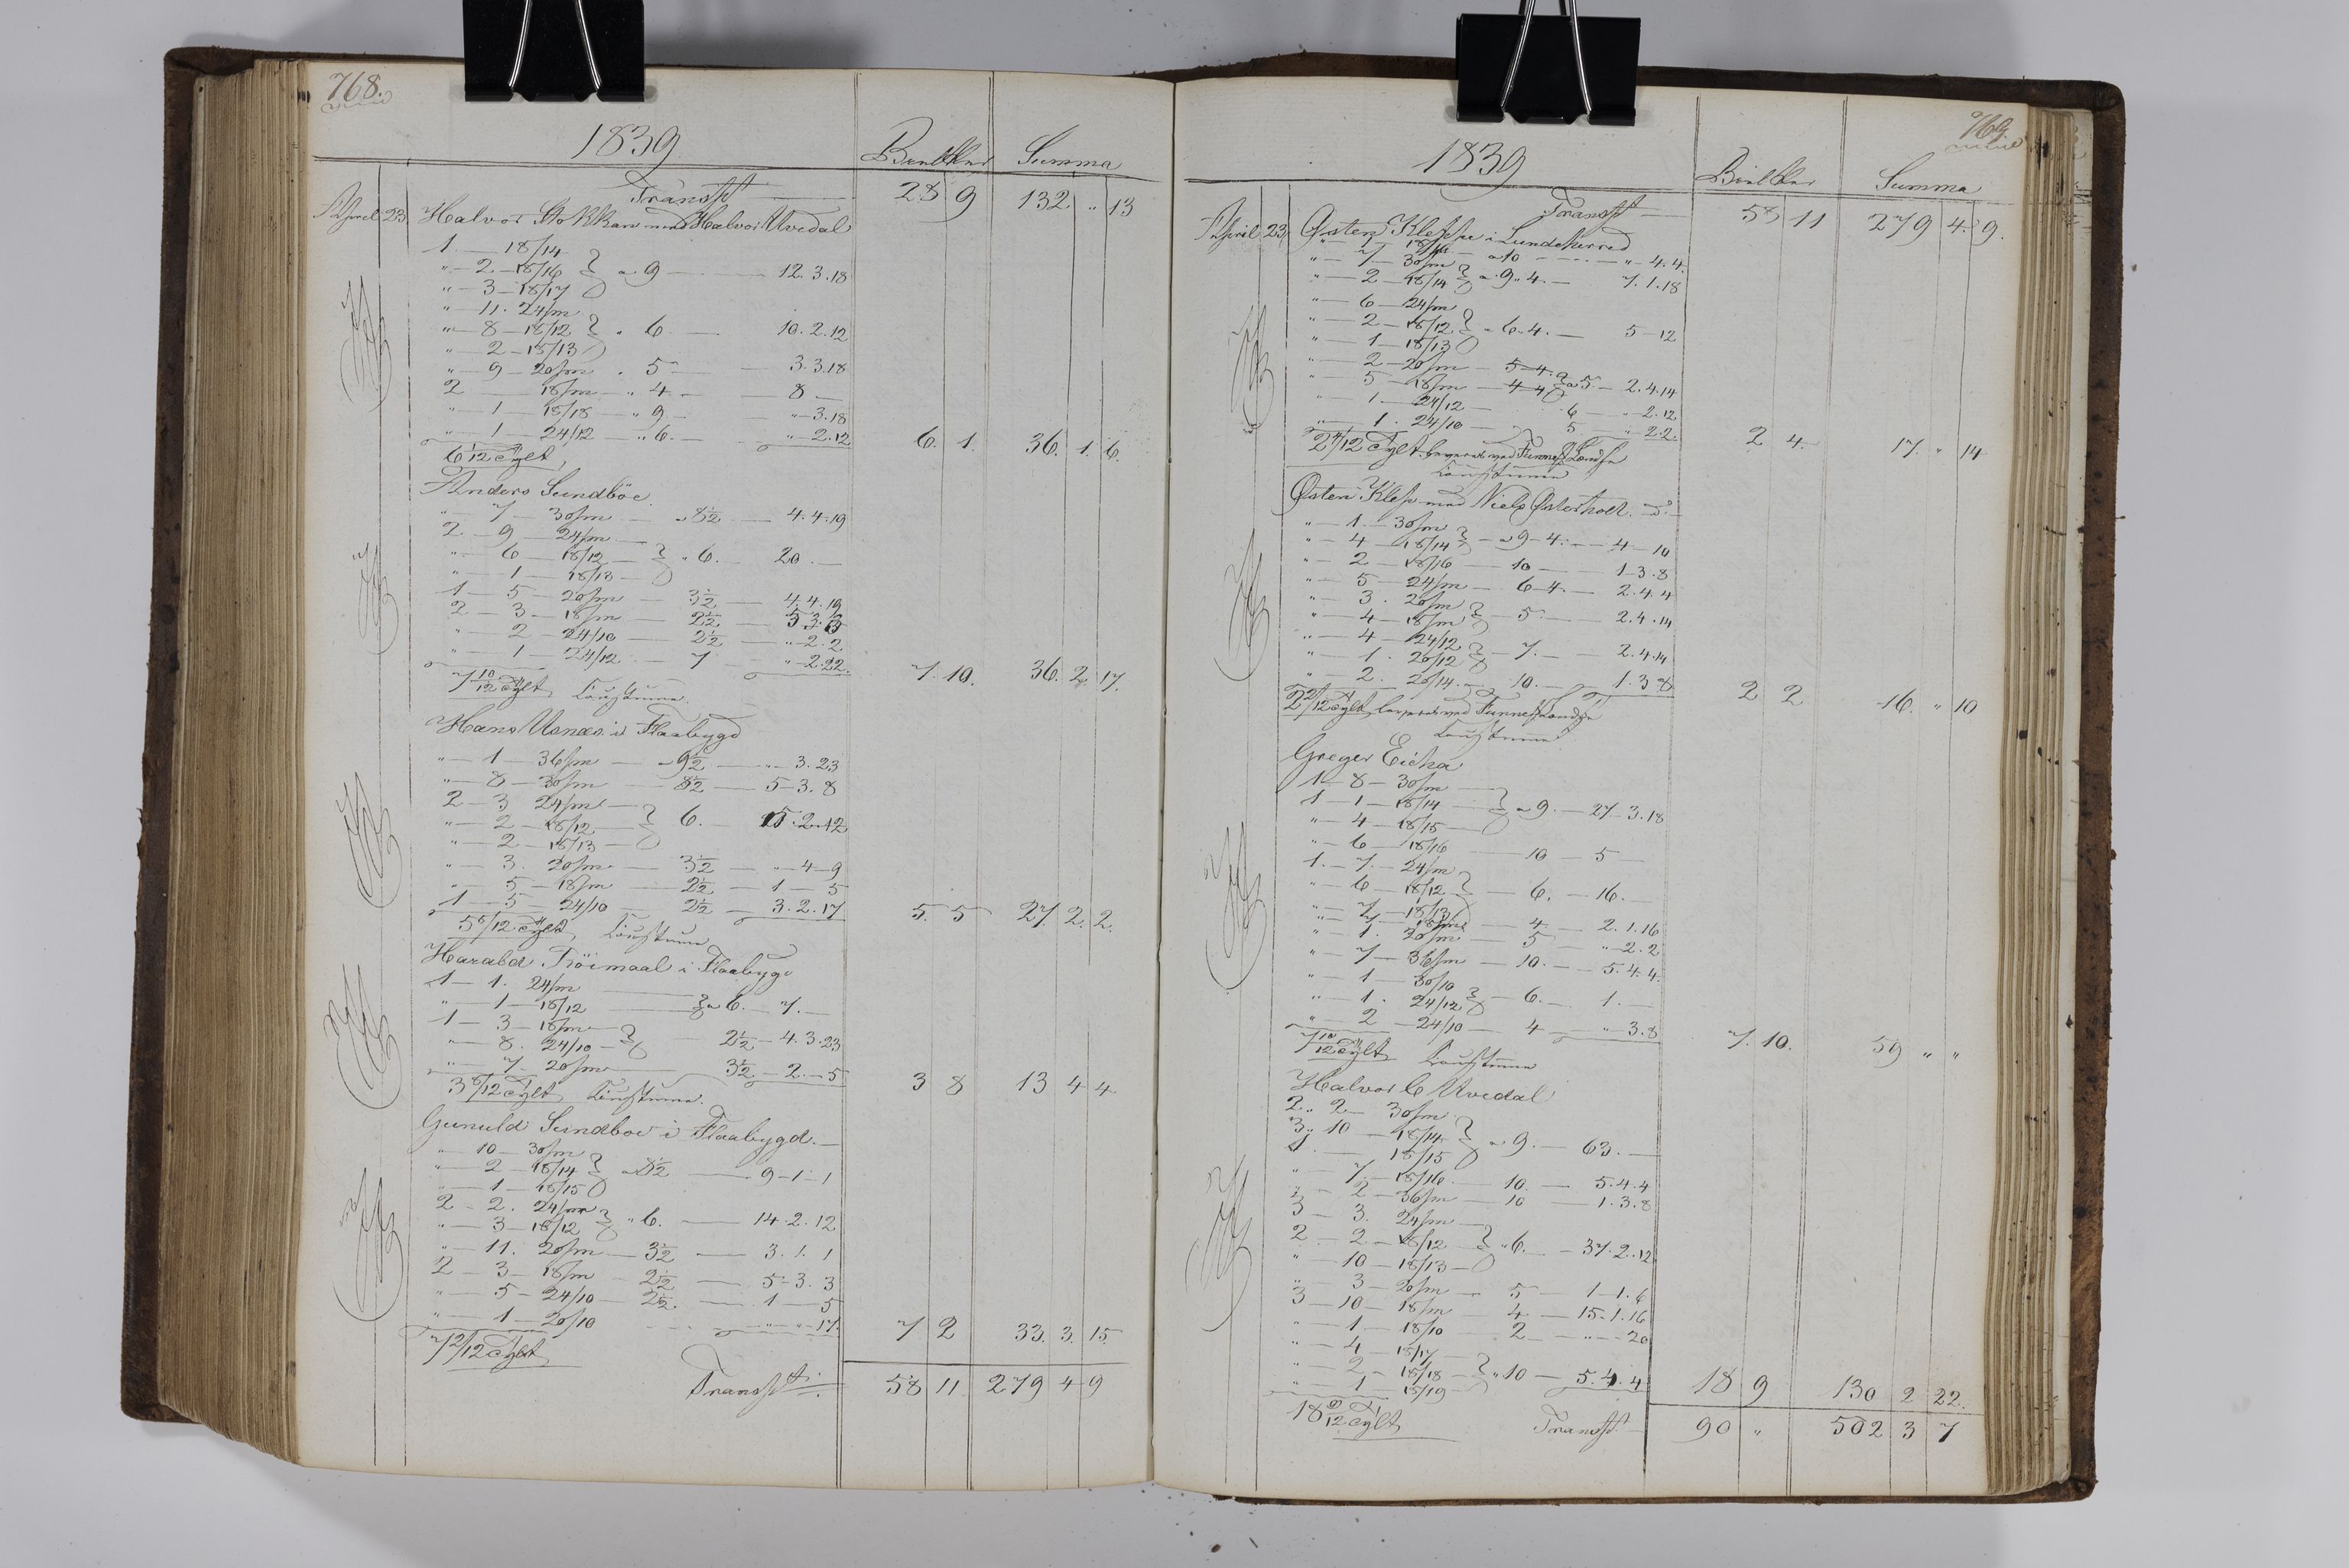 768.
1839 Bielker Summa
Transpt 28 9 132 " 13
April 23 Halvor Stokkan med Halvor Uvedal
1 — 18/14
" — 2 — 18/16 } a 9 — 12.3.18
" — 3 — 18/17
" — 11. 24/m
" — 8 — 18/12 } " 6. — 10.2.12
" — 2 — 18/13
" — 9 — 20/m " 5 — 3.3.18
2 18/m — " 4 — 8 —
" — 1 — 18/18 — " 9 — " — 3.18
" — 1 — 24/12 — " 6. — " — 2.12
6 1/12 Tylt 6. 1. 36. 1. 6.
Anders Sundböe
" — 7 — 30/m — a 8½ — 4.4.19
2 — 9 — 24/m —
" — 6 — 18/12 — } " 6. — 20. —
" — 1 — 18/13 —
1 — 5 — 20/m — 3½ — 4.4.19
2 — 3 — 18/m — 2½ — 5.3.3
" — 2 — 24/10 — 2½ — " — 2.2
" — 1 — 24/12 — 7 " — 2.22.
7 10/12 Tylt 7. 10. 36. 2. 17.
Hans Usnæs i Flaabygd
" — 1 — 36/m — a 9½ — " — 3.23
" — 8 — 30/m — 8½ — 5 — 3.8
2 — 3 24/m —
" — 2 — 18/12 — } 6. — 15.2.12
" — 2 — 18/13 —
" — 3. 20/m — 3½ — " — 4 — 9
" — 5 — 18/m — 2½ — 1 — 5
1 — 5 — 24/10 — 2½ — 3.2.17
5 5/12 Tylt 5. 5 27. 2. 2.
Harald Tröimaal i Flaabygd
1 — 1. 24/m
" — 1 — 18/12 } a 6. 7. —
1 — 3 — 18/m —
" — 8. 24/10 — } 2½ — 4.3.23
" — 7 — 20/m 3½ — 2. — 5
3 8/12 Tylt 3 8 13 4 4
Gunuld Sundboe i Flaabygd. —
" — 10 — 30/m
" — 2 — 18/14 } a 8½ — 9 — 1 — 1
" — 1 — 18/15
2 — 2. 24/m
" — 3 — 18/12 } " 6. — 14.2.12
" — 11. 20/m — 3½ — 3.1.1
2 — 3 — 18/m — 2½ — 5 — 3.3
" — 5 — 24/10 — 2½ — 1 — 5
" — 1 — 20/10 — " — " — 17.
7 2/12 Tylt 7 2 33. 3. 15.
Transpt: 58 11 279 4 9
769.
1839 Bielker Summa
Transpt 58 11 279 4. 9.
April 23 Østen Kleppe i Lundeherred
" — 1 — 18/16 — a 10 — " 4.4.
" — 7 — 30/m
" — 2 — 18/14 } a 9 " 4. — 7.1.18
" — 6 — 24/m
" — 2 — 18/12 } " 6.4. — 5 — 12
" — 1 — 18/13
" — 2 — 20/m — 5 — 4.
" — 5 — 18/m — 4 — 4 } a 5 — 2.4.14
" — 1 — 24/12 — 6 — " — 2.12
" — 1. 24/10 — 5 — " 2.2.
2 4/12 Tylt 2 4 17. " 14
Østen Klep med Niels Østerholt
" — 1. — 30/m
" — 4 — 18/14 } a 9 — 4. — 4 — 10
" — 2 — 18/16 — 10 — 1 — 3.8
" — 5 — 24/m — 6 — 4. — 2.4.4
" — 3. 20/m
" — 4 — 18/m } 5. — 2.4.14
" — 4 — 24/12
" — 1. 20/12 } — 7. — 2.4.14
" — 2. 20/14. — 10. — 1.3.8
2 2/12 Tylt 2 2 16. " 10
Greger Eicha
1 — 8 — 30/m —
1 — 1 — 18/14 — } a 9. — 27 — 3.18
" — 4 — 18/15 —
" — 6 — 18/16 — 10 — 5 —
1. — 7. — 24/m
" — 6 — 18/12 } — 6. — 16. —
" — 7 — 18/13
" — 7 — 18/m — 4 — 2.1.16
" — 1. 20/m — 5 — " — 2.2
" — 7 — 36/m — 10. — 5.4.4.
" — 1 — 30/10
" — 1. 24/12 } — 6. — 1. —
" — 2 — 24/10 — 4 — " — 3.8
7 10/12 Tylt 7. 10. 59 " "
Halvor C Uvedal
2 " 2 — 30/m
3 " 10 — 18/14 } a 9. — 63. —
1. — 18/15
" — 7 — 18/16 — 10. — 5.4.4
" — 2 — 36/m — 10 — 1.3.8
3 — 3. 24/m —
2 — 2 — 18/12 } " 6. — 37.2.12
" — 10 — 18/13 —
" — 3 — 20/m — 5 — 1 — 1.6
3 — 10 — 18/m — 4 — 15.1.16
" — 1 — 18/10 2 — " — 20
" — 4 — 18/17
" — 2 — 18/18 — } " 10 — 5.4.4
" — 1 — 18/19
18 9/12 Tylt 18 9 130 2 22.
Transpt 90 " 502 3 7